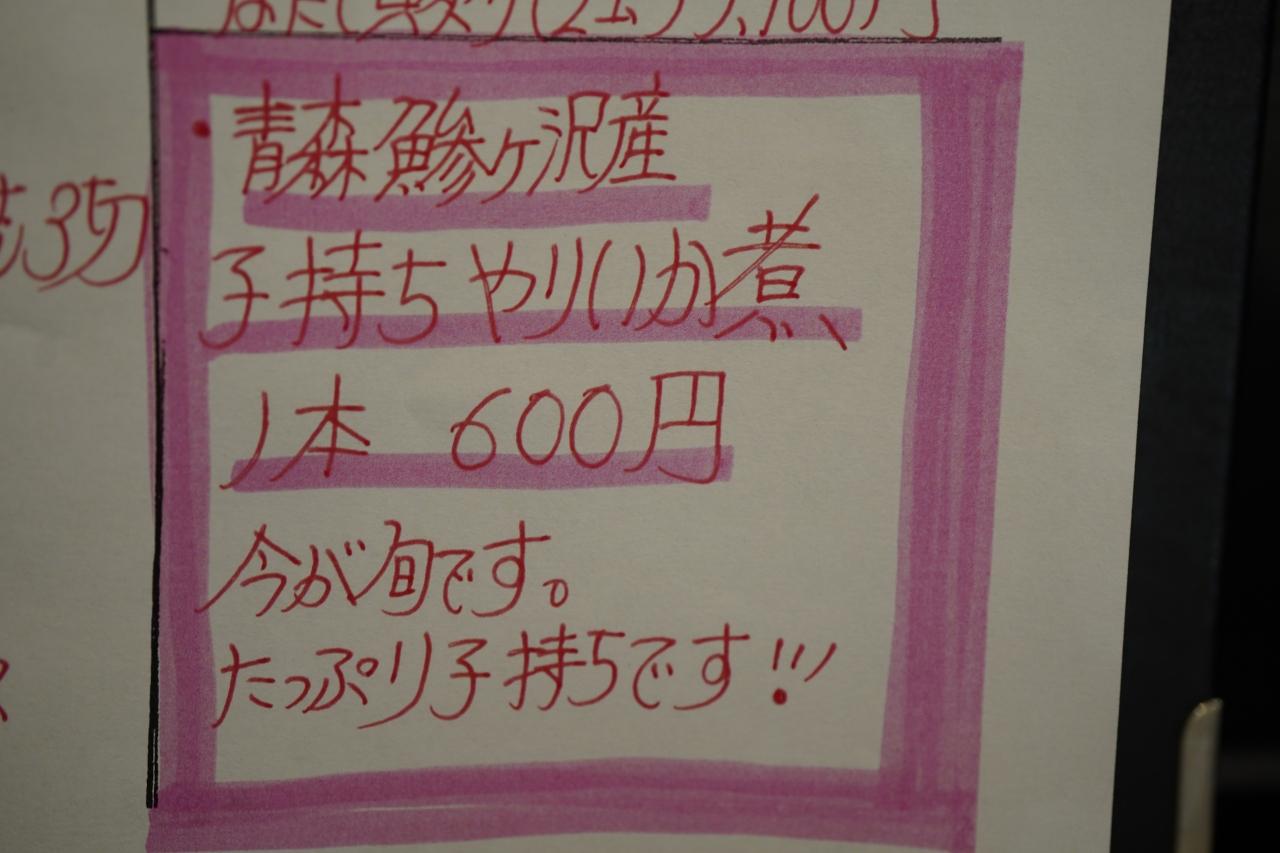 ・青森鰺ヶ沢産
子持ちやりいか煮
1本 600円
今が旬です。
たっぷり子持ちです!!!
3切